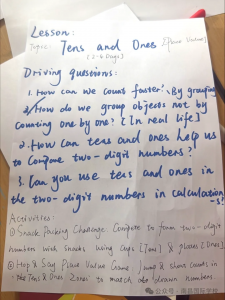 Lesson:
Topic: Tens and Ones [Place Value]
[2-4 Days]
Driving questions:
1. How can we count faster? By grouping
2/How do we group objects not by
counting one by one? [In real life]
2. How can tens and ones help us
to compare two-digit numbers?
3. Can you use tens and ones in
the two-digit numbers in calculation
-s?
Activities:
① Snack Packing Challenge Compete to form two-digit
numbers with snacks using cups [Tens] & plates [Ones].
② Hop & Say Place Value Game: Jump & shout counts in
the Tens & Ones Zones to match the given numbers.
公众号:南昌国际学校